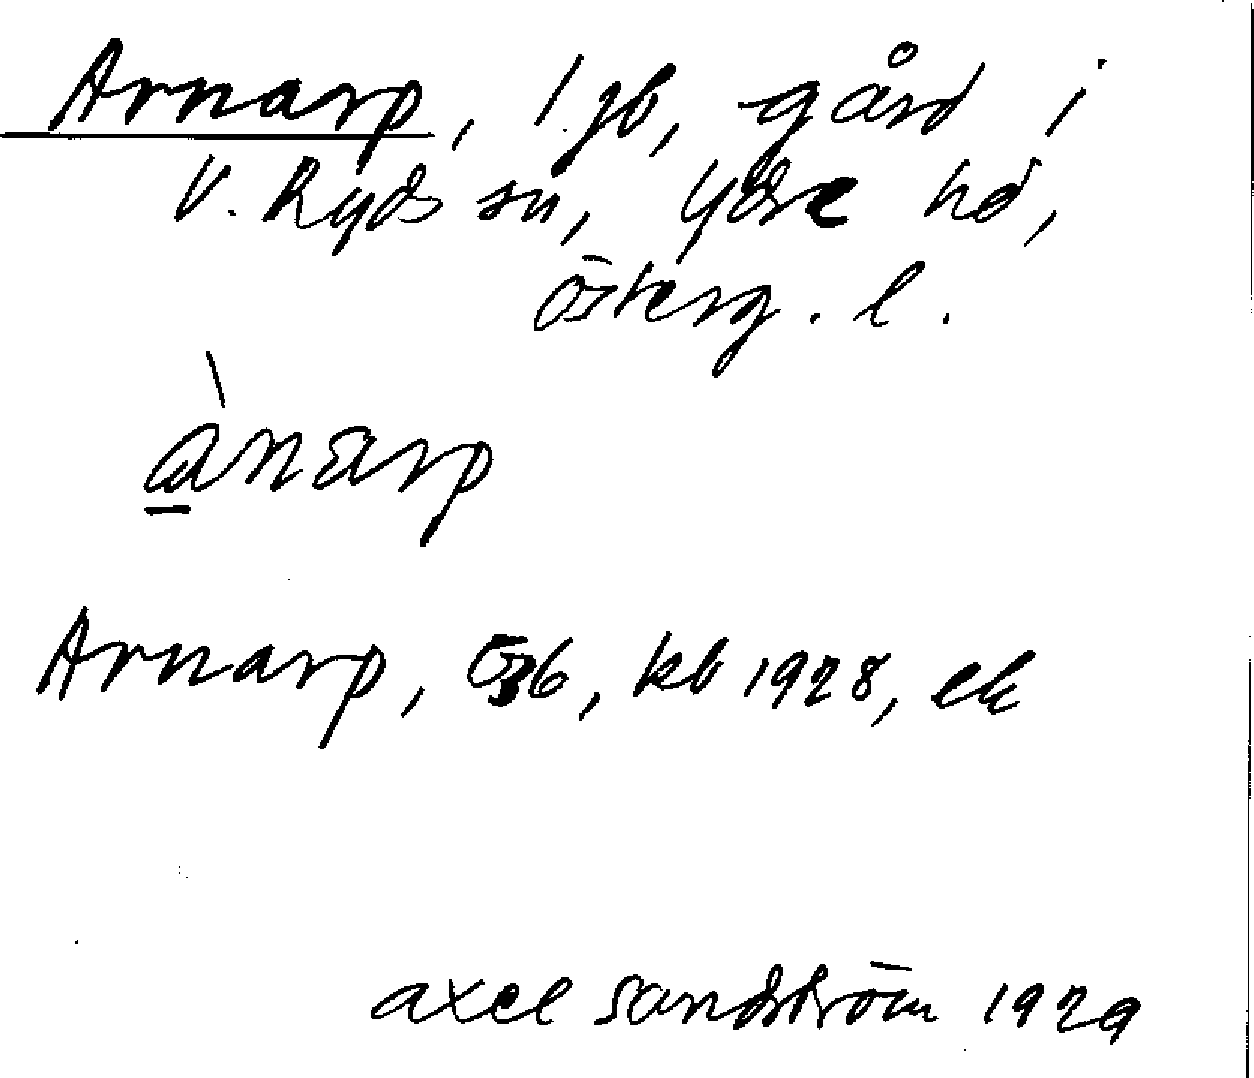 Arnarp, 1.jb, gård i
V. Ryds sn, Ydre hd,
Österg. l.
ànarp
Arnarp, Ö36, kb 1928, ek
axel sandström 1929